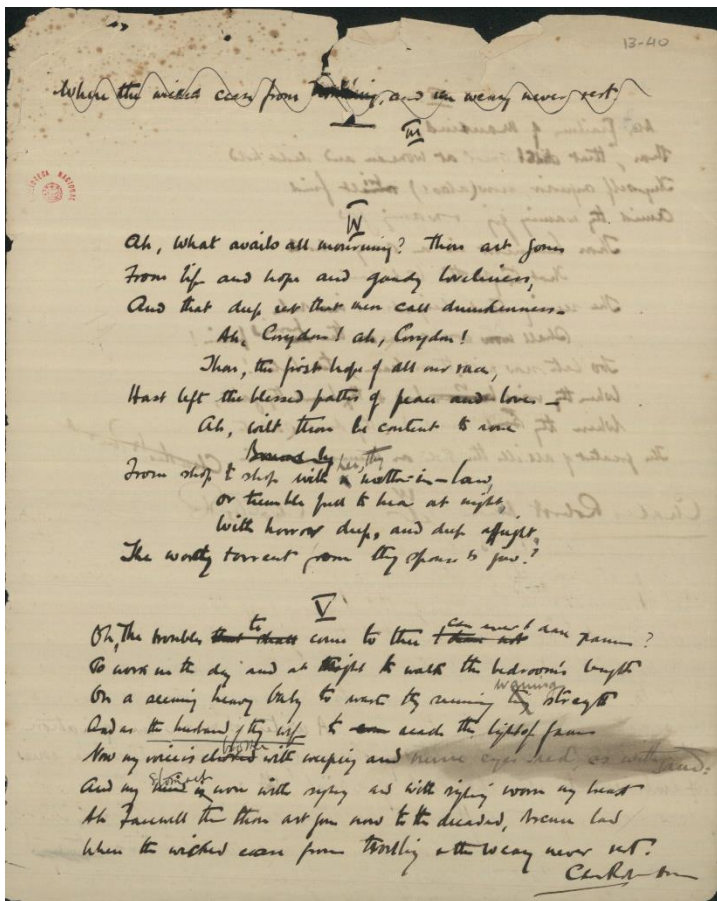 13-40
Where the wicked cease from troubling, and the weary never rest.
III
IV
Ah, what avails all mourning? Thou art gone
From life and hope and gaudy loveliness,
And that deep rest that men call drunkenness—
Ah, Corydon! ah, Corydon!
Thou, the first hope of all our race,
Hast left the blessed paths of peace and love—
Ah, wilt thou be content to rove
From shop to shop with her, thy mother-in-law,
Or tremble full to hear at night,
With horror deep, and deep affright,
The wordy torrent from thy spouse's jaw?
V
Oh, the troubles to come to thee can ever I dare
To work in the day and at night to walk the bedroom's length
On a seeming heavy baby to waste thy waning strength
And as the husband of thy wife to reach the light of fame
Now my voice is with weeping and mine eyes red, as with sand:
And my is worn with sighing and with sighing worn my heart
Ah Farewell thou art gone now to the
When the wicked cease from troubling & the weary never rest.